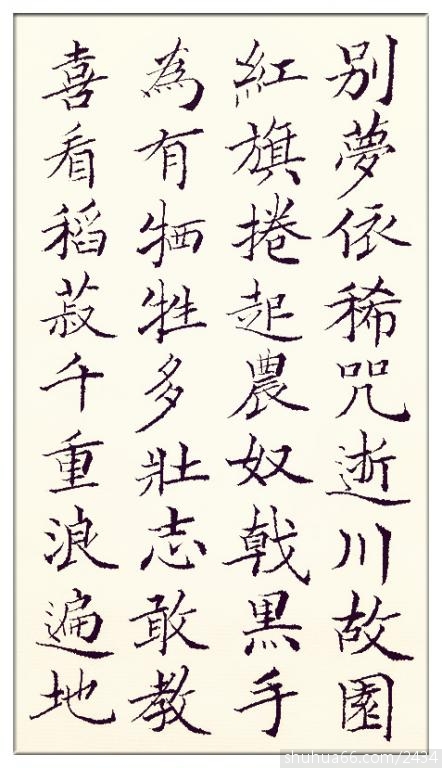 别夢依稀咒逝川故園
紅旗捲起農奴戟黑手
為有牺牲多壯志敢教
喜看稻菽千重浪遍地
shuhua66.com/2434